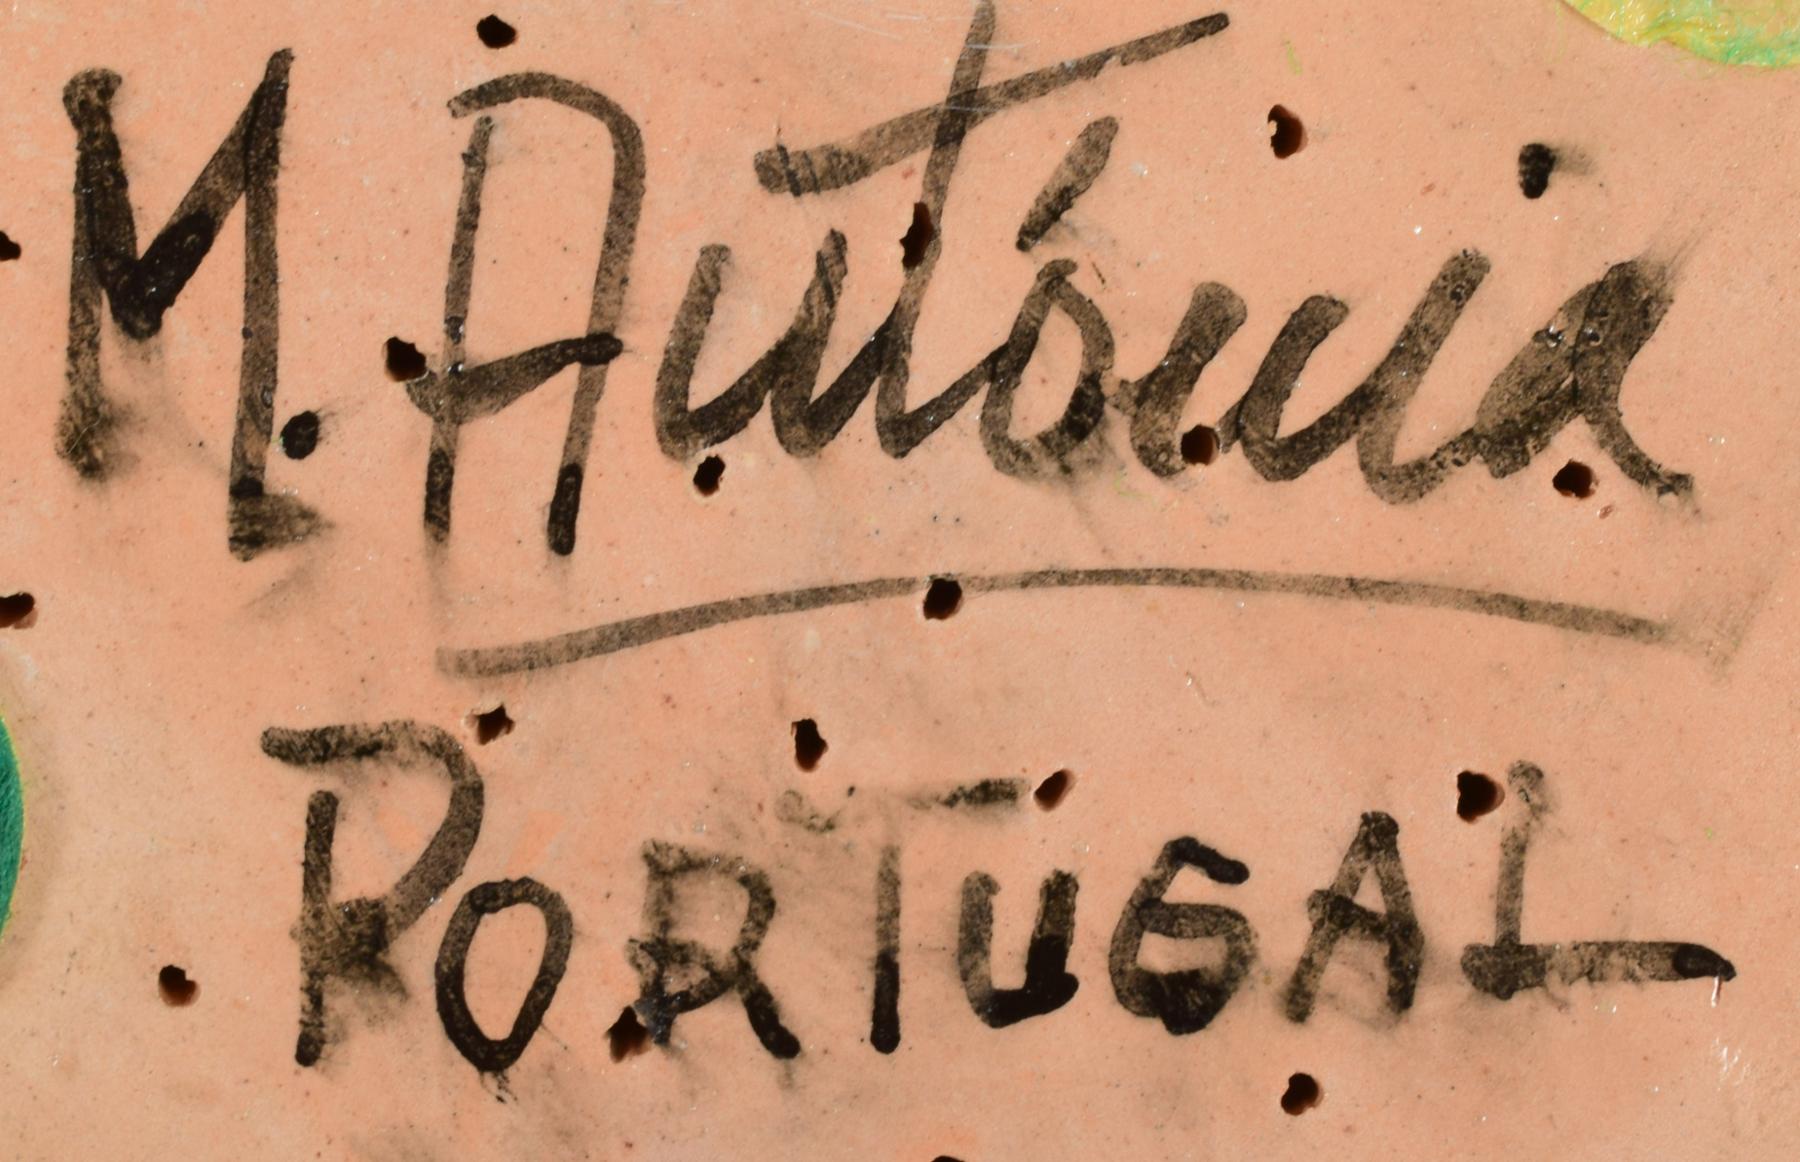 M. António
PORTUGAL